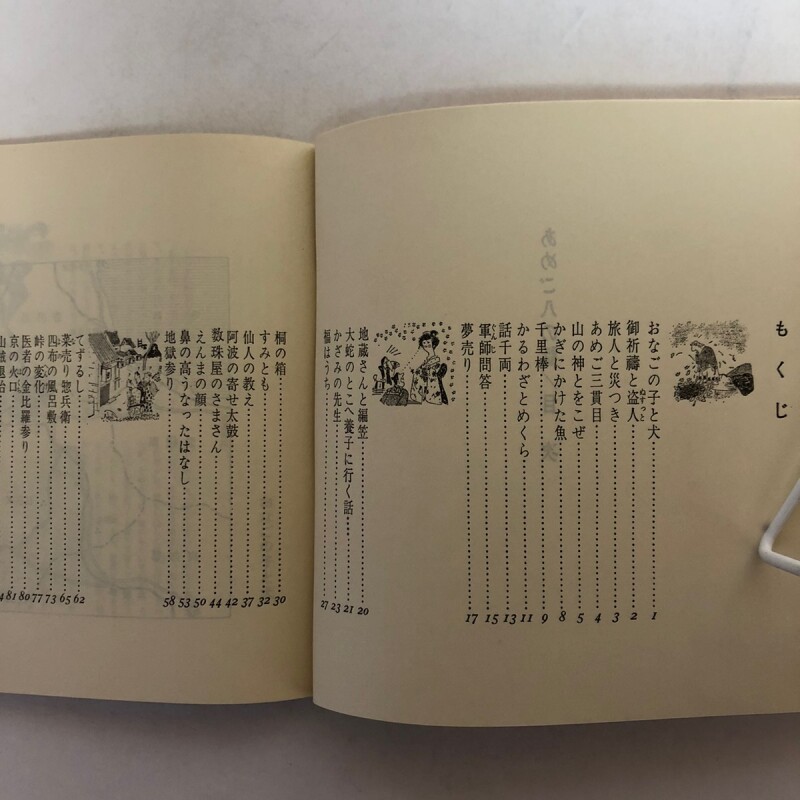 もくじ
おなごの子と犬 1
御祈禱と盗人 2
旅人と災つき 3
あめご三貫目 4
山の神とをこぜ 5
かぎにかけた魚 8
千里棒 9
かるわざとめくら 11
話千両 13
軍師問答 15
夢売り 17
地蔵さんと編笠 20
大蛇のとこへ養子に行く話 21
かざみの先生 23
福はうち 27
桐の箱 30
すみとも 32
仙人の教え 37
阿波の寄せ太鼓 42
数珠屋のさまさん 44
えんまの顔 50
鼻の高うなったはなし 53
地獄参り 58
てずるし 62
薬売り惣兵衛 65
四布の風呂敷 73
峠の変化 77
医者の金比羅参り 80
京の 81